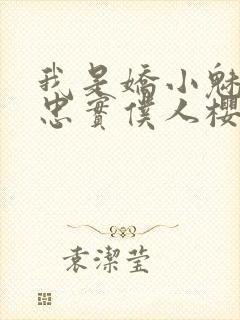 我是嬌小魅
忠實僕人櫻
袁潔瑩